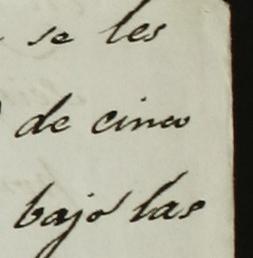 se les
de cinco
bajo las